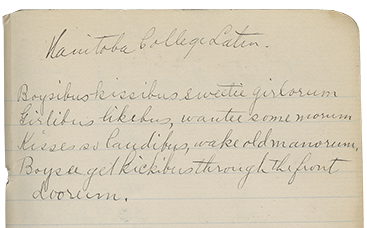 Manitoba College Latin.
Boysibus kissibus sweetie girlorum
Girlibus likibus, wantee some morum
Kisses so laudibus, wake old manorum,
Boysee get kickibus through the front
doorum.